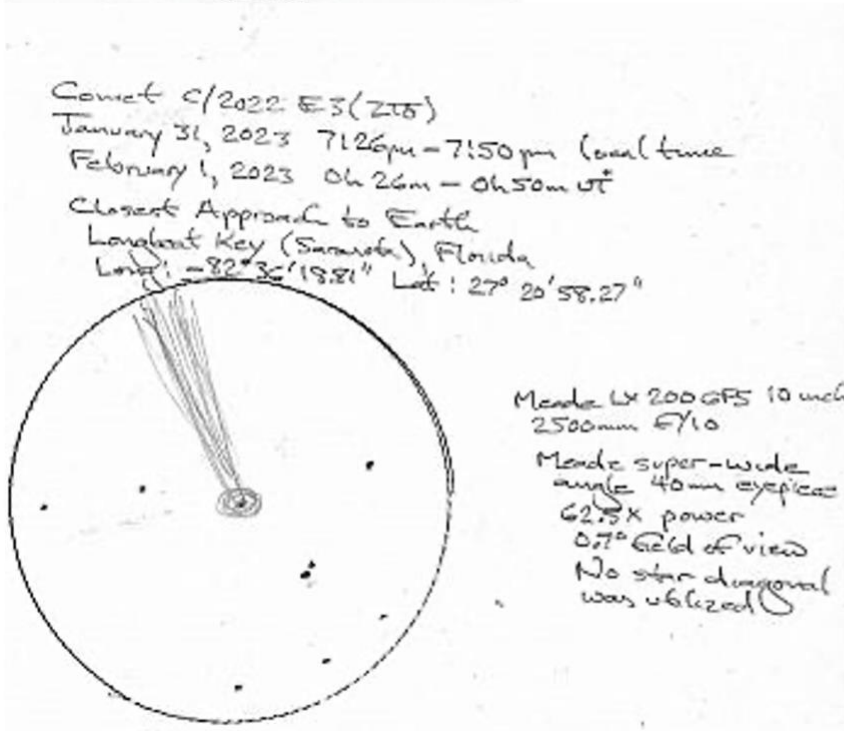 Comet C/2022 E3 (ZTF)
January 31, 2023 7:26pm - 7:50pm local time
February 1, 2023 0h 26m - 0h 50m UT
Closest Approach to Earth
Longboat Key (Sarasota), Florida
Long: -82° 36' 18.81" Lat: 27° 20' 58.27"
Meade LX 200 GPS 10 inch
2500mm F/10
Meade super-wide
angle 40mm eyepiece
62.5X power
0.7° field of view
No star diagonal
was utilized